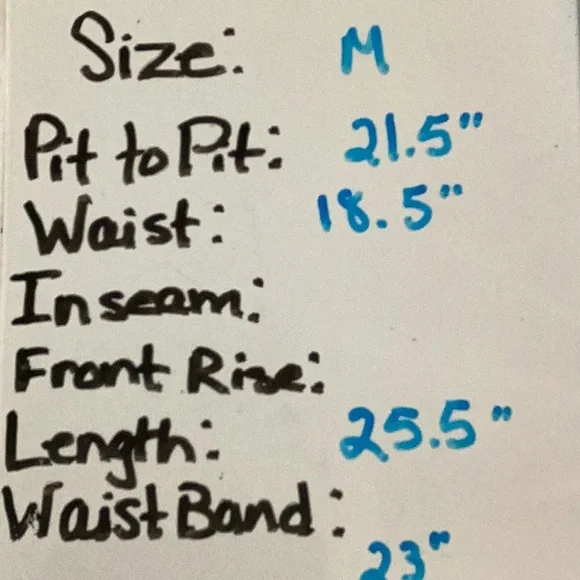 Size: M
Pit to Pit: 21.5"
Waist: 18.5"
Inseam:
Front Rise:
Length: 25.5"
Waist Band:
23"